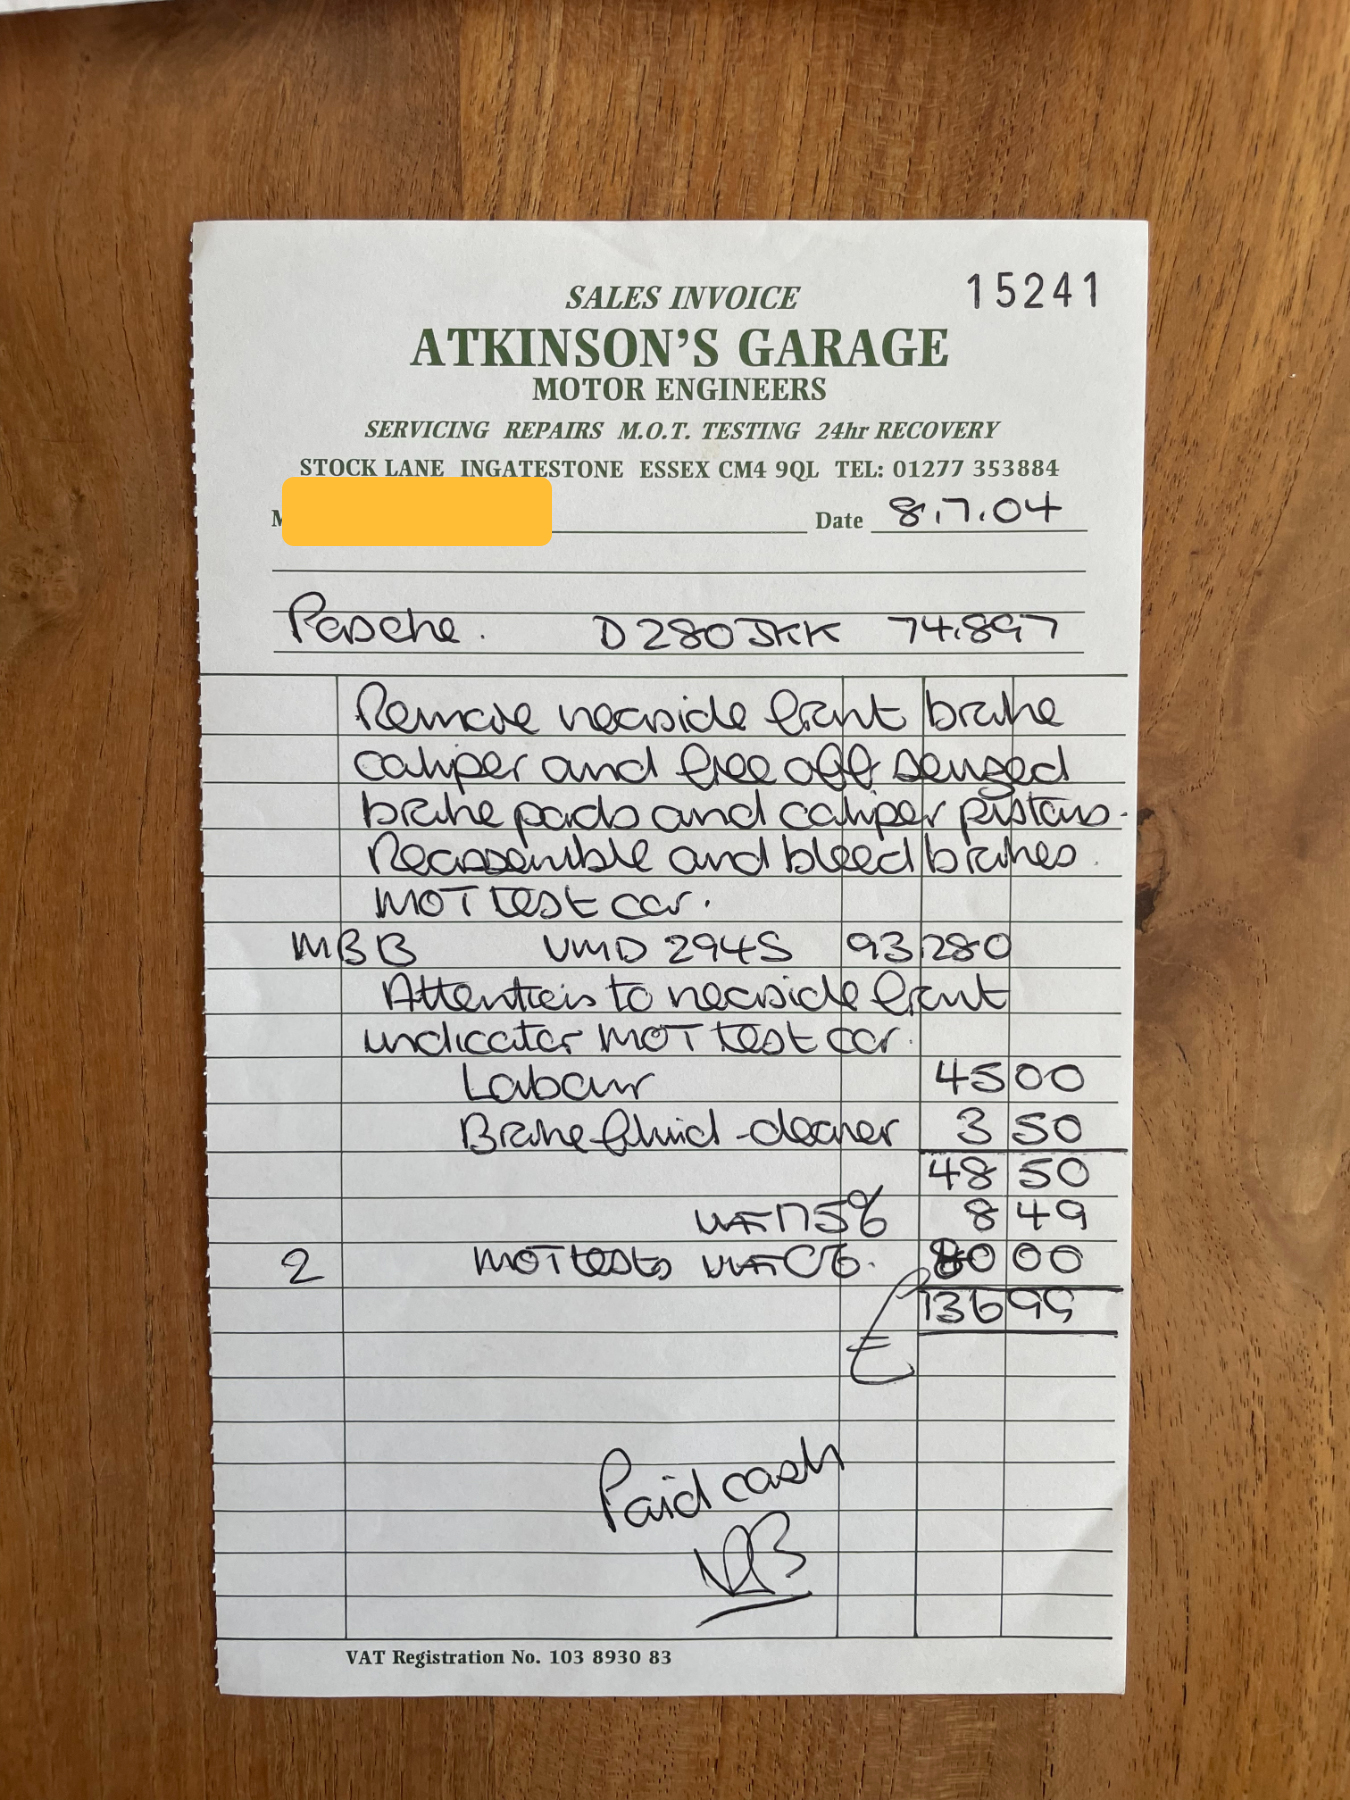 15241
SALES INVOICE
ATKINSON'S GARAGE
MOTOR ENGINEERS
SERVICING REPAIRS M.O.T. TESTING 24hr RECOVERY
STOCK LANE INGATESTONE ESSEX CM4 9QL TEL: 01277 353884
M Date 8.7.04
Porsche. D280JKK 74,897
Remove nearside front brake
caliper and free off seized
brake pads and caliper pistons.
Reassemble and bleed brakes.
MOT test car.
MGB VMD 294S 93280
Attention to nearside front
indicator MOT test car.
Labour 45 00
Brake fluid - cleaner 3 50
48 50
VAT 17.5% 8 49
2 MOT tests VAT 0%. 80 00
£ 136 99
Paid cash
VAT Registration No. 103 8930 83